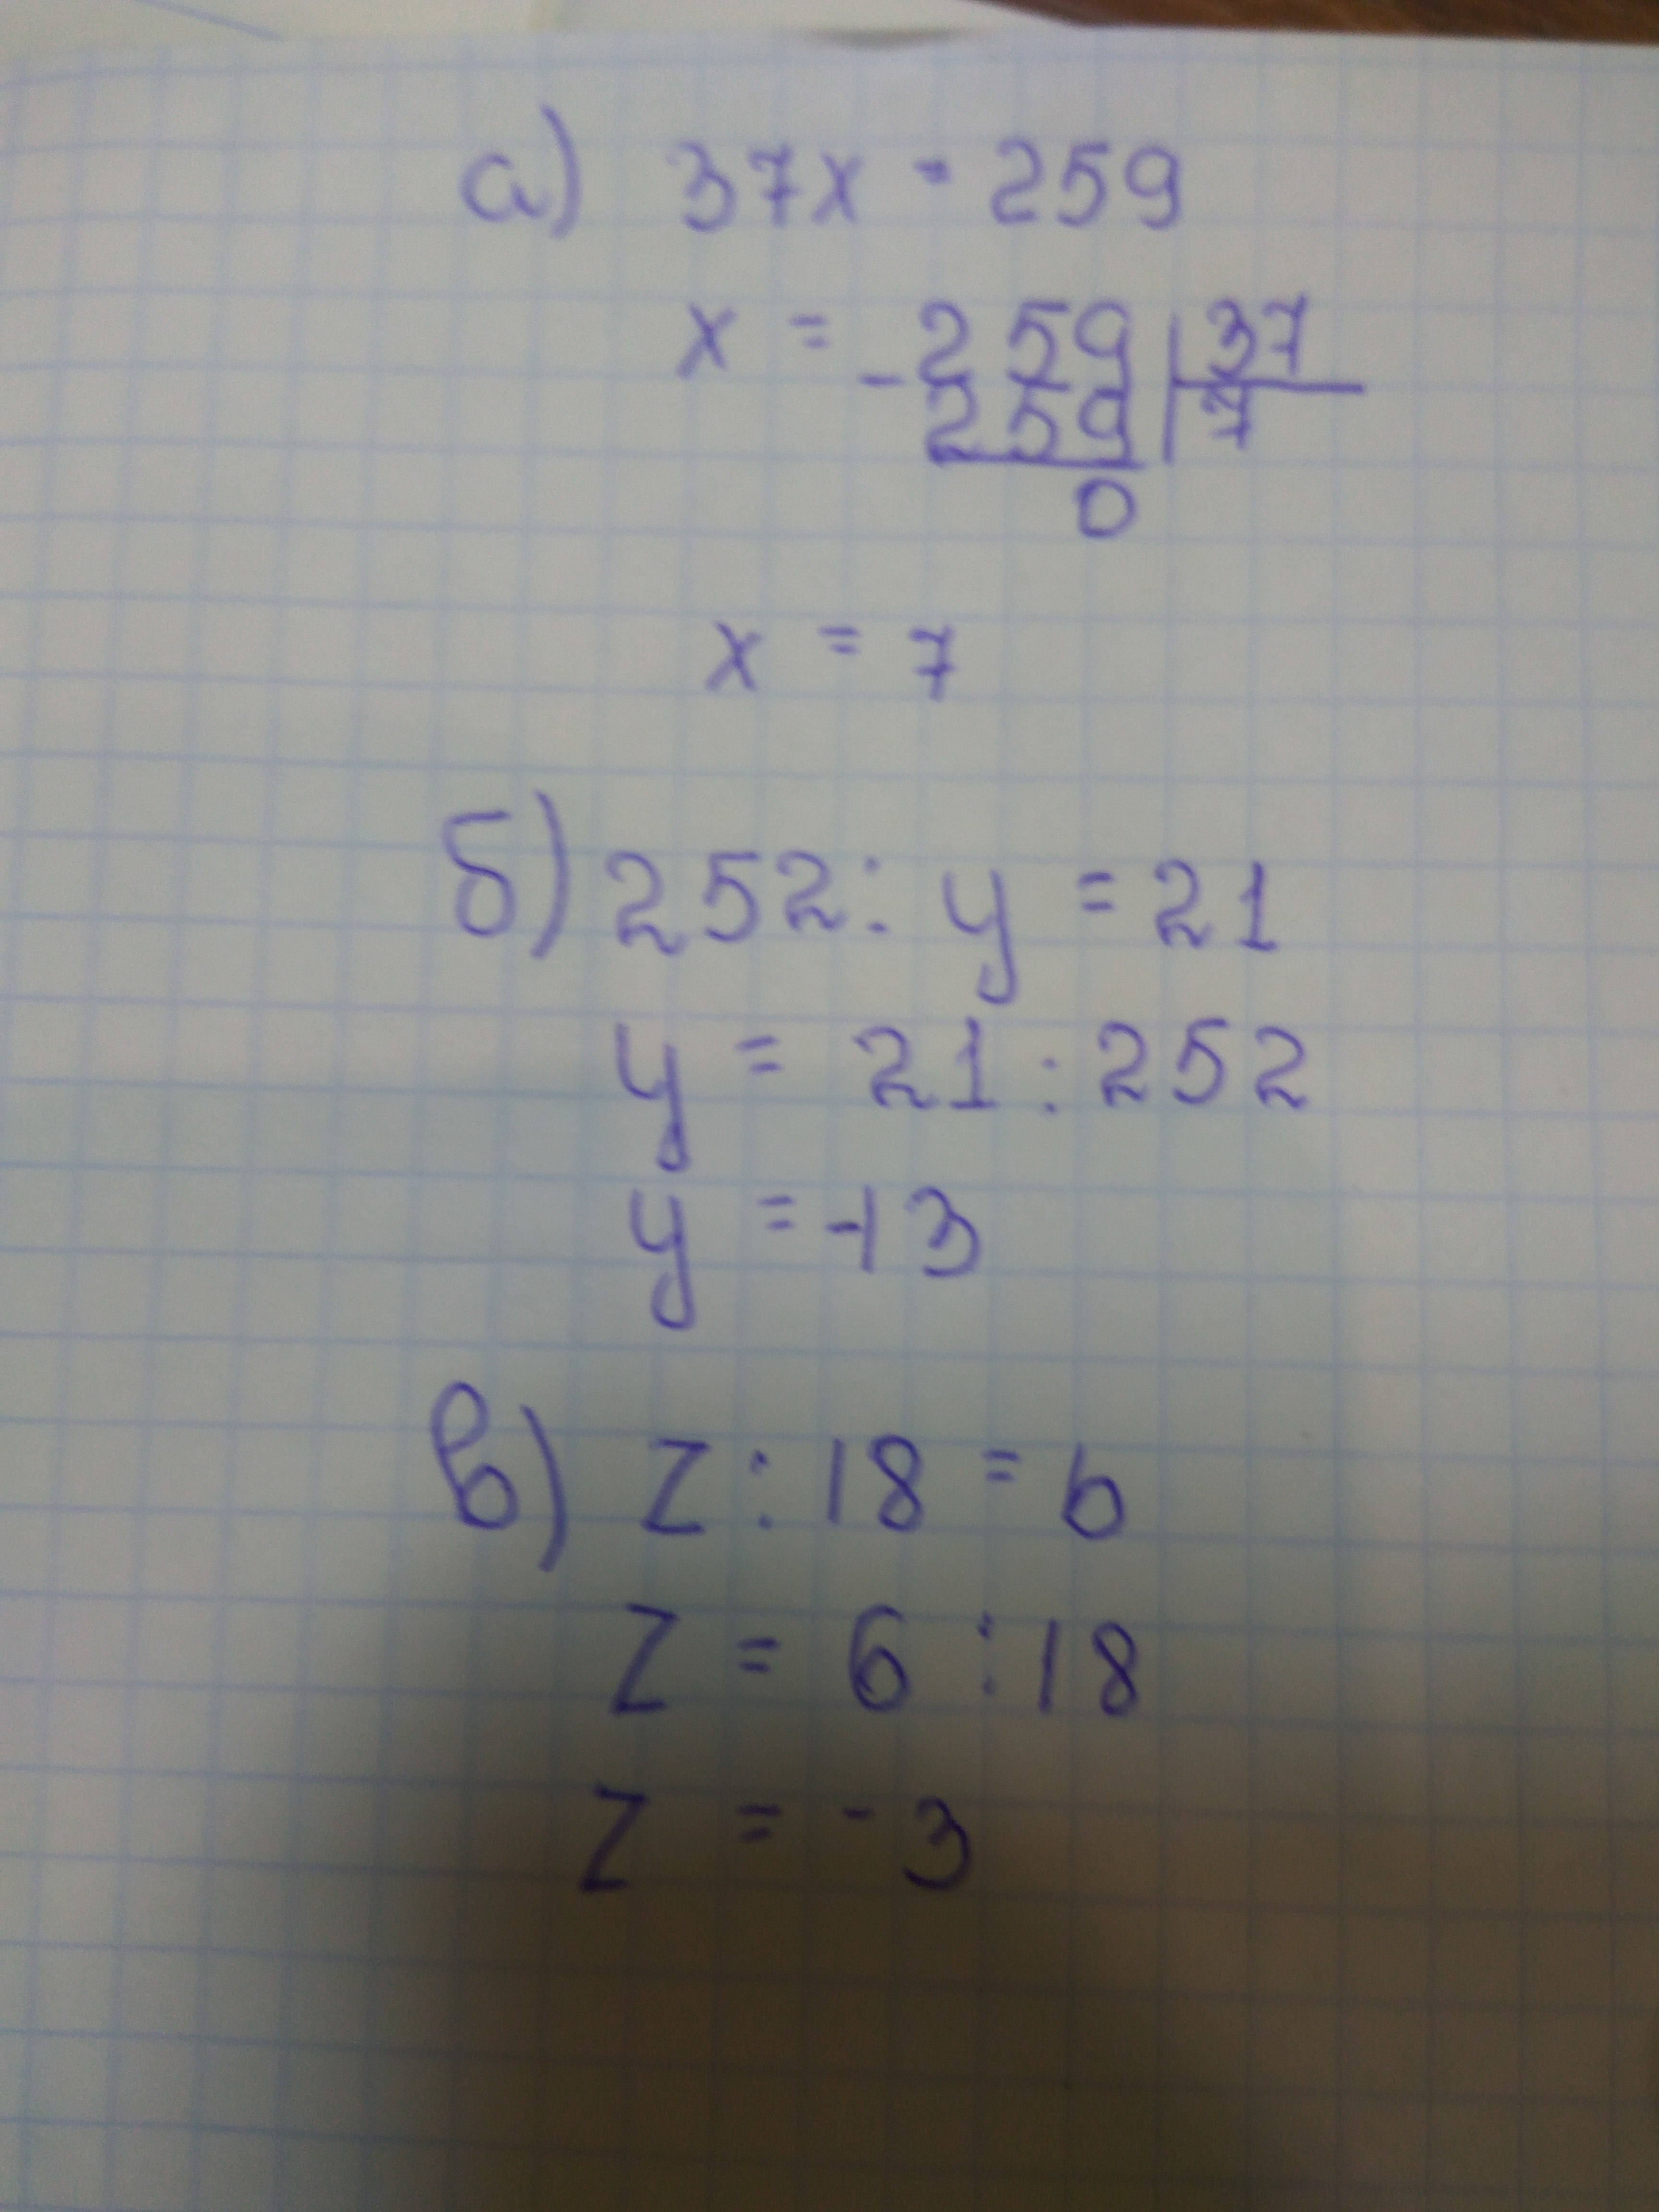 а) 37x = 259
x = - 259 | 37
259 | 7
0
x = 7
б) 252 : y = 21
y = 21 : 252
y = -13
в) z : 18 = 6
z = 6 : 18
z = - 3